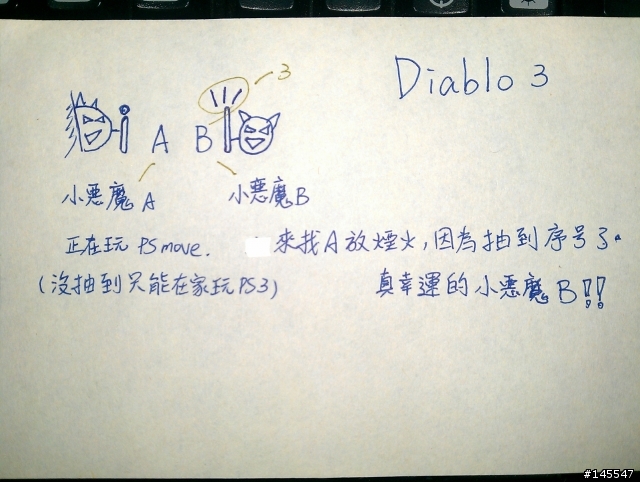 Diablo 3
3
A B
小惡魔 A 小惡魔 B
正在玩 PS move. 來找A放煙火,因為抽到序號了.
(沒抽到只能在家玩PS3) 真幸運的小惡魔 B!!
#145547